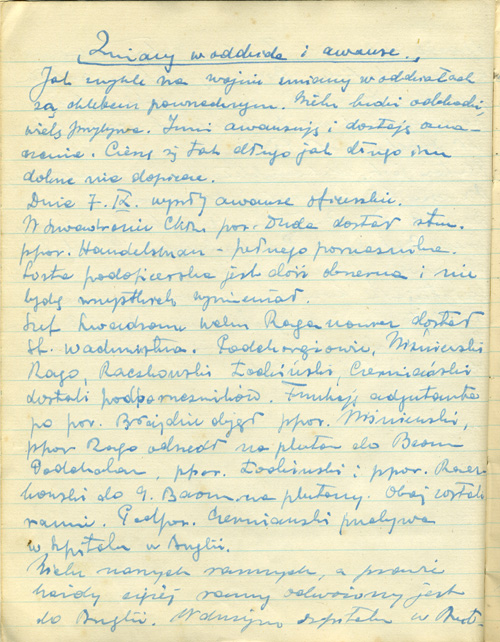 Zmiany w oddziale i awanse.
Jak zwykle na wojnie zmiany w oddziałach
są chlebem powszednim. Wielu ludzi odchodzi,
wielu przybywa. Inni awansują i dostają odzna-
czenia. Cieszą się tak długo jak długo im
dobrze nie dopiecze.
Dnia 7. IX. wyszły awanse oficerskie.
W szwadronie Ckm. por. Duda dostał rtm.
ppor. Handelsman - pełnego porucznika.
Lista podoficerska jest dość obszerna i nie
będę wszystkich wymieniał.
Szef szwadronu wachm. Raganowicz dostał
st. wachmistrza. Podchorążowie, Wiśniewski
Rago, Raczkowski Łodziński, Czerniawski
dostali podporuczników. Funkcję adjutanta
po por. objął ppor. Wiśniewski,
ppor Rago odszedł na pluton do Baonu
Podhalan, ppor. Łodziński i ppor. Racz-
kowski do 9. Baonu na plutony. Obaj zostali
ranni. Podpor. Czerniawski przebywa
w szpitalu w Anglii.
Wielu naszych rannych, a prawie
każdy ciężej ranny odwożony jest
do Anglii. W dużym szpitalu w